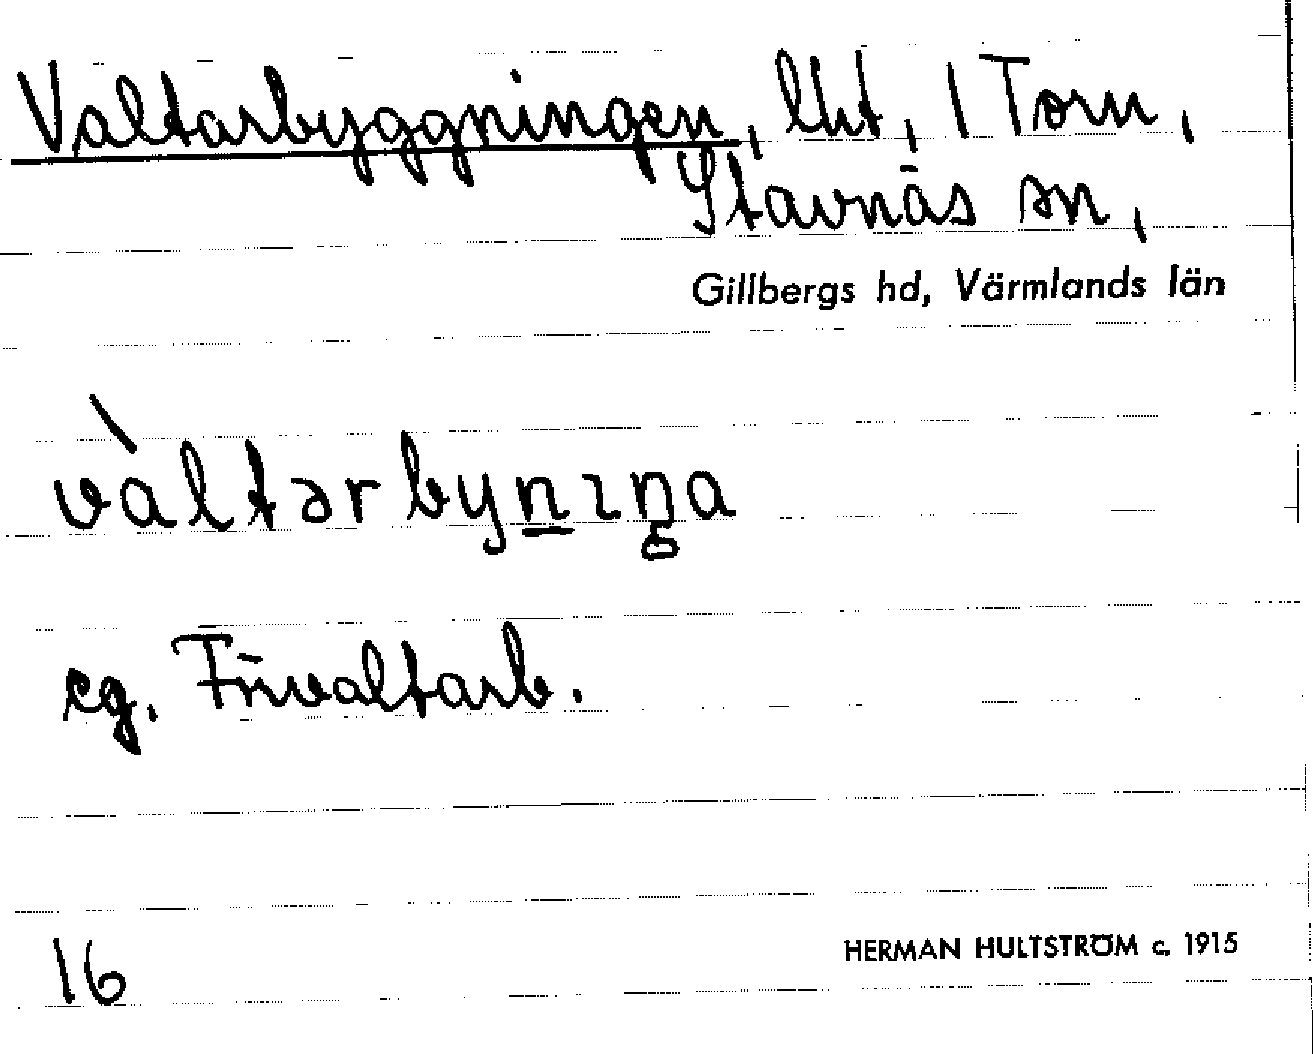 Valtarbyggningen, lht, 1 Torn,
Stavnäs sn,
Gillbergs hd, Värmlands län
vàltərbynıŋa
eg. Förvaltarb.
16
HERMAN HULTSTRÖM c. 1915